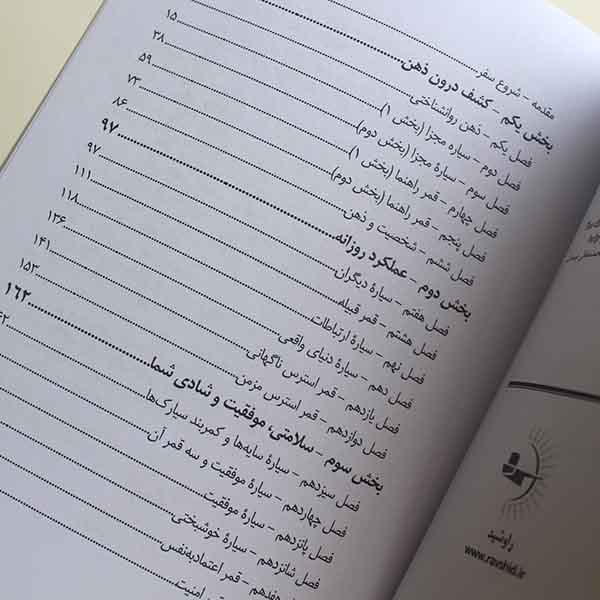 مقدمه – شروع سفر
بخش یکم – کشف درون ذهن ۱۵
فصل یکم – ذهن روانشناختی ۳۸
فصل دوم – سیاره مجزا (بخش ۱) ۵۹
فصل سوم – سیاره مجزا (بخش دوم) ۷۳
فصل چهارم – قمر راهنما (بخش ۱) ۸۶
فصل پنجم – قمر راهنما (بخش دوم)
فصل ششم – شخصیت و ذهن
بخش دوم – عملکرد روزانه ۹۷
فصل هفتم – سیارهٔ دیگران ۹۷
فصل هشتم – قمر قبیله ۱۱۱
فصل نهم – سیارهٔ ارتباطات ۱۱۸
فصل دهم – سیارهٔ دنیای واقعی ۱۳۶
فصل یازدهم – قمر استرس ناگهانی ۱۴۱
فصل دوازدهم – قمر استرس مزمن ۱۵۳
بخش سوم – سلامتی، موفقیت و شادی شما ۱۶۲
فصل سیزدهم – سیارهٔ سایه‌ها و کمربند سیارک‌ها
فصل چهاردهم – سیارهٔ موفقیت و سه قمر آن
فصل پانزدهم – سیارهٔ موفقیت
فصل شانزدهم – سیارهٔ خوشبختی
هفدهم – قمر اعتمادبه‌نفس
امنیت
راوشید
www.ravshid.ir